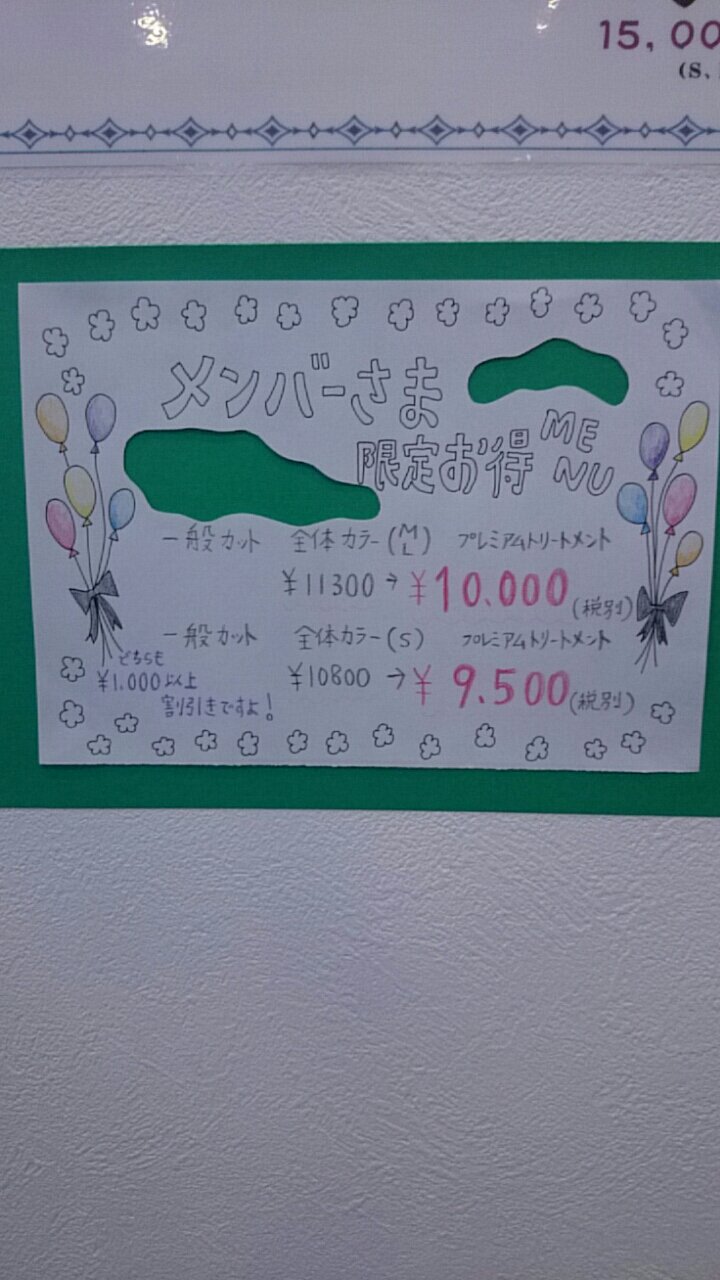 15,00
(S、
メンバーさま
限定お得 MENU
一般カット 全体カラー(M L) プレミアムトリートメント
¥11300→¥10.000(税別)
一般カット 全体カラー(S) プレミアムトリートメント
¥10800→¥9.500(税別)
どちらも
¥1.000以上
割引きですよ!